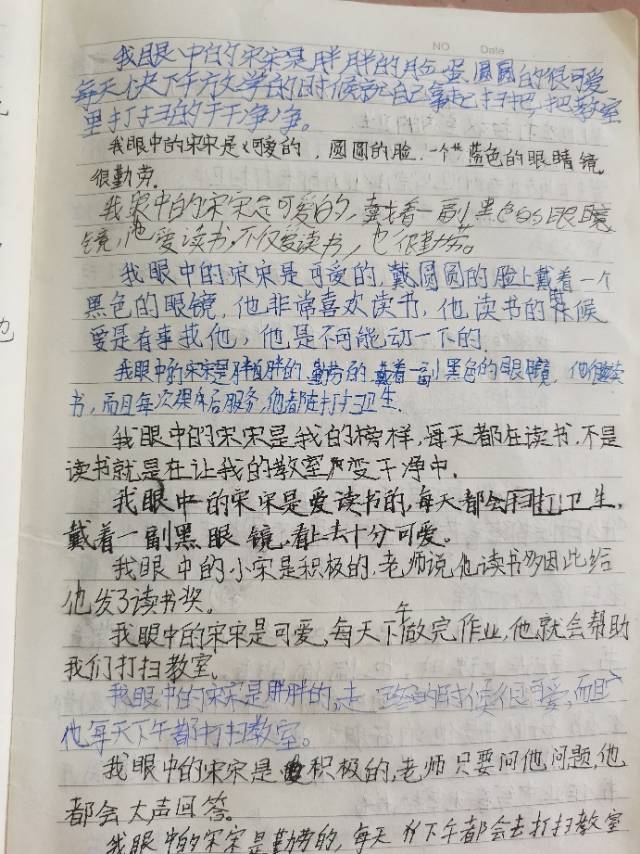 NO Date
我眼中的宋宋是胖胖的脸蛋圆圆的很可爱
每天快下午放学的时候自己拿起扫把,把教室
里打扫的干干净净。
我眼中的宋宋是可爱的,圆圆的脸,一个蓝色的眼睛镜
很勤劳.
我眼中的宋宋是可爱的,戴着一副黑色的眼镜
镜,他爱读书,不仅爱读书,也很勤劳。
我眼中的宋宋是可爱的,戴圆圆的脸上戴着一个
黑色的眼镜,他非常喜欢读书,他读书的时候
要是有事找他,他是不可能动一下的.
我眼中的宋宋是胖胖的.勤劳的.戴着一副黑色的眼镜,他
书,而且每次课后服务,他都在打扫卫生.
我眼中的宋宋是我的榜样,每天都在读书.不是
读书就是在让我的教室变干净中.
我眼中的宋宋是爱读书的,每天都会打扫卫生,
戴着一副黑眼镜,看上去十分可爱。
我眼中的小宋是积极的,老师说他读书多因此给
他发了读书奖。
我眼中的宋宋是可爱,每天下午做完作业,他就会帮助
我们打扫教室.
我眼中的宋宋是胖胖的,走路的时候很可爱,而且
他每天下午都打扫教室。
我眼中的宋宋是积极的,老师只要问他问题,他
都会大声回答。
我眼中的宋宋是勤劳的,每天下午都会去打扫教室